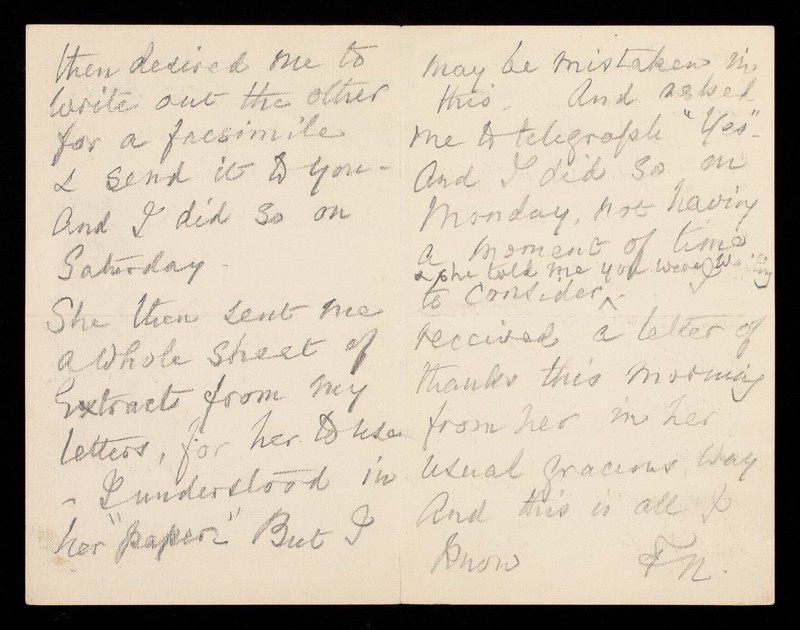 then desired me to
write out the other
for a facsimile
& send it to you -
And I did so on
Saturday -
She then sent me
a whole sheet of
Extracts from my
letters, for her to use
- I understood in
her "paper." But I
may be mistaken in
this. And asked
me to telegraph "Yes" -
And I did so on
Monday, not having
a moment of time
& she told me you were waiting
to consider ^.
received a letter of
thanks this morning
from her in her
usual gracious way
And this is all I
know F N.